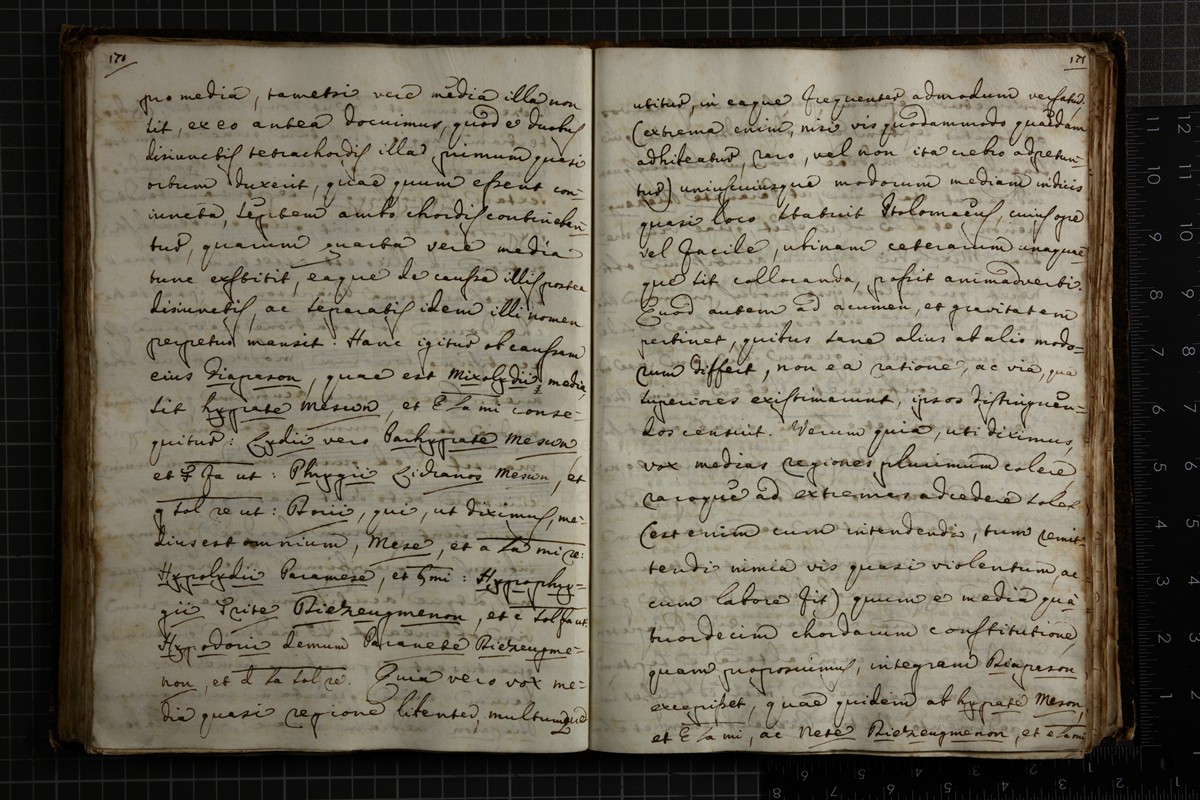 170
pro media, tametsi vere media illa non
sit, ex eo antea docuimus, quod e duobus
disiunctis tetrachordis illa primum quasi
ortum duxerit, quae quum essent con-
iuncta, septem ambo chordis contineban-
tur, quarum quarta vere media
tunc exstitit, eaque de caussa illis postea
disiunctis, ac separatis idem illi nomen
perpetuo mansit. Hanc igitur ob caussam
eius Diapason, quae est Mixolydii, media
sit hypate Meson, et E la mi conse-
quitur: Lydii vero Parhypate Meson,
et F fa ut: Phrygii Lichanos Meson, et
g sol re ut: Dorii, qui, ut diximus, me-
dius est omnium, Mese, et a la mi re:
Hypolydii Paramese, et ♮ mi: Hypophry-
gii Trite Diezeugmenon, et c sol fa ut:
Hypodorii demum Paranete Diezeugme-
non, et d la sol re. Quia vero vox me-
dia quasi regione libenter, multumque
171
utitur, in eaque frequenter admodum versatur
(extrema enim, nisi vis quodammodo quaedam
adhibeatur, raro, vel non ita crebro appetun-
tur) uniuscuiusque modorum mediam indicis
quasi loco statuit Ptolomaeus, cuius ope
vel facile, ubinam ceterarum unaquae-
que sit collocanda, possit animadverti.
Quod autem ad acumen, et gravitatem
pertinet, quibus sane alius ab alio modo-
rum differt, non ea ratione, ac via, qua
superiores existimarunt, ipsos distinguen-
dos censuit. Verum quia, uti diximus,
vox medias regiones plurimum colere
raroque ad extremas accedere solet
(est enim cum intendendi, tum remit-
tendi nimia vis quasi violentum, ac
cum labore fit), quum e media qua-
tuordecim chordarum constitutione,
quam proposuimus, integram Diapason
excepisset, quae quidem ab hypate Meson,
et E la mi, ac Nete Diezeugmenon, et e la mi